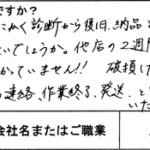 ですか?
にかく診断から復旧、納品
いでしょうか。他店の2週間
かっていません!! 破損し
の連絡、作業終了、発送、と
いた
会社名またはご職業